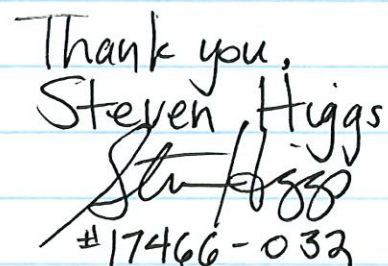 Thank you,
Steven Higgs
Steven Higgs
#17466-032